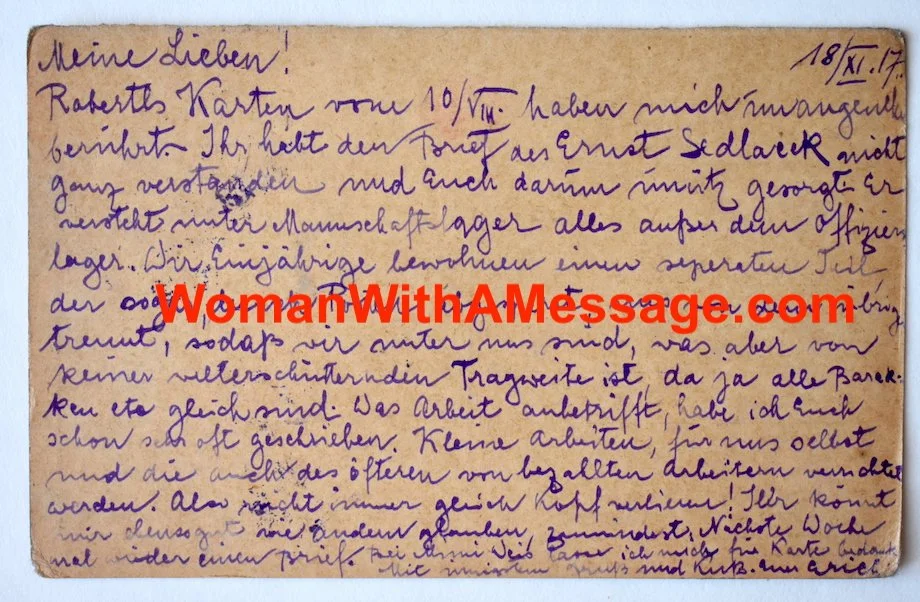 Meine Lieben! 18/XI.17.
Robertls Karten vom 10/VIII. haben mich unangenehm
berührt. Ihr habt den Brief des Ernst Sedlacek nicht
ganz verstanden und Euch darum unütz gesorgt. Er
versteht unter Mannschaftslager alles außer dem Offiziers
lager. Wir Einjährige bewohnen einen seperaten Teil
der sogt. uns von dem übrig
WomanWithAMessage.com
trennt, sodaß wir unter uns sind, was aber von
keiner welterschütternden Tragweite ist, da ja alle Barak-
ken etc gleich sind. Was Arbeit anbetrifft, habe ich Euch
schon sehr oft geschrieben. Kleine Arbeiten, für uns selbst
und die auch des öfteren von bezahlten Arbeitern verrichtet
werden. Also nicht immer gleich Kopf verlieren! Ihr könnt
mir ebensogut wie andern glauben, zumindest. Nächste Woche
mal wieder einen Brief. Bei Weis lasse ich mich für Karte bedank
Mit innigstem Gruß und Kuß. Euer Erich